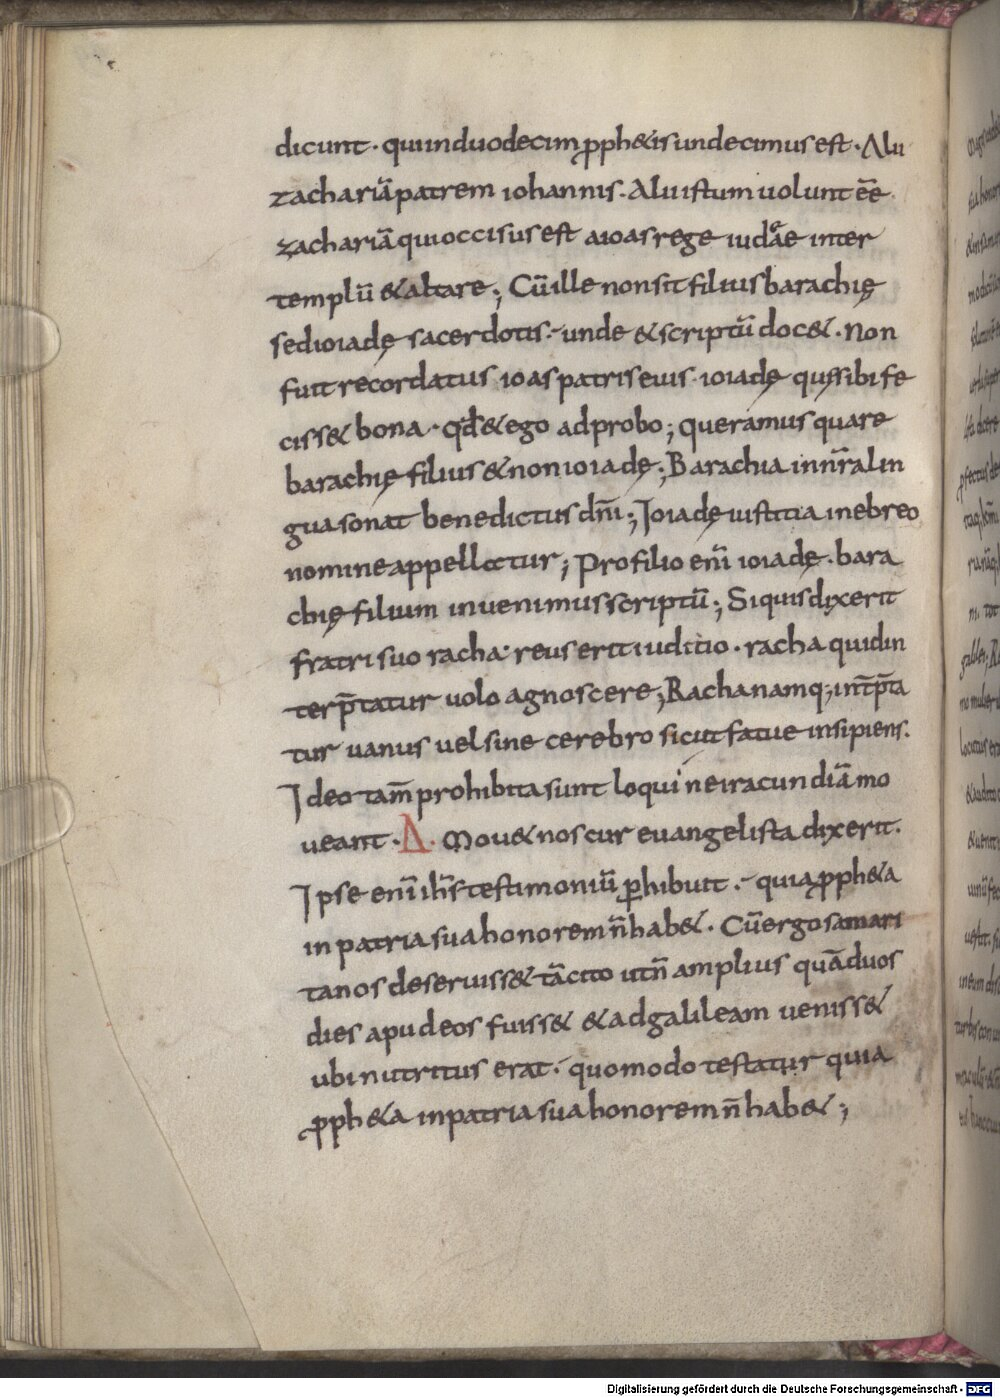 dicunt · qui in duodecim pph&is undecimus est · Alii
zachariā patrem iohannis · Alii istum uolunt eē
zachariā qui occisus est a ioas rege iudæ inter
templū & altare ; Cū ille non sit filius barachię
sed ioiadę sacerdotis · unde & scriptū doc& · Non
fuit recordatus ioas patris eius ioiadę quę sibi fe
ciss& bona · qđ & ego adprobo ; queramus quare
barachię filius & non ioiadę ; Barachia in nr̄a lin
gua sonat benedictus dn̄i ; Ioiadę iustitia in ebreo
nomine appellatur ; Pro filio enī ioiadę · bara
chię filium inuenimus scriptū ; Siquis dixerit
fratri suo racha · reus erit iuditio · racha quid in
terp̄tatur uolo agnoscere ; Racha namq; int̄p̄ta
tur uanus uel sine cerebro sicut fatue insipiens ·
Ideo tam̄ prohibita sunt loqui ne iracundiā mo
ueant · Δ · Mou& nos cur euangelista dixerit ·
Ipse enī ih̄s testimoniū phibuit · quia pph&a
in patria sua honorem n̄ hab& · Cū ergo samari
tanos deseruiss& tācito ut n̄ amplius quā duos
dies apud eos fuiss& & ad galileam ueniss&
ubi nutritus erat · quomodo testatur quia
pph&a in patria sua honorem n̄ hab& ;
Digitalisierung gefördert durch die Deutsche Forschungsgemeinschaft - DFG